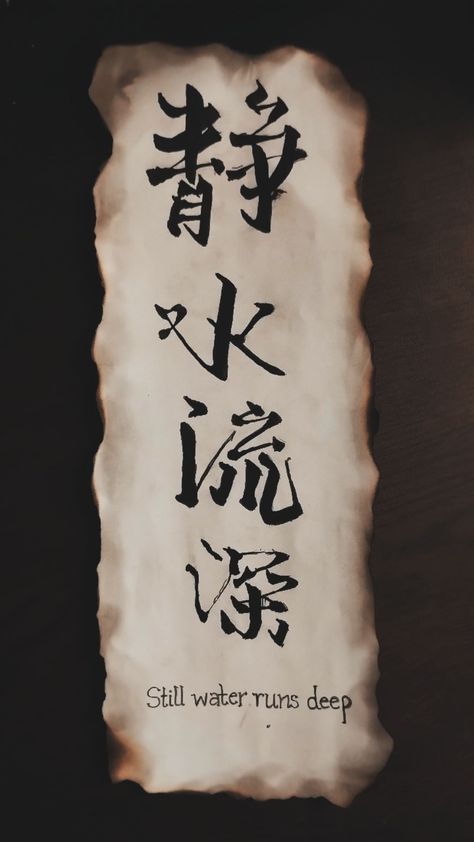 静水流深
Still water runs deep